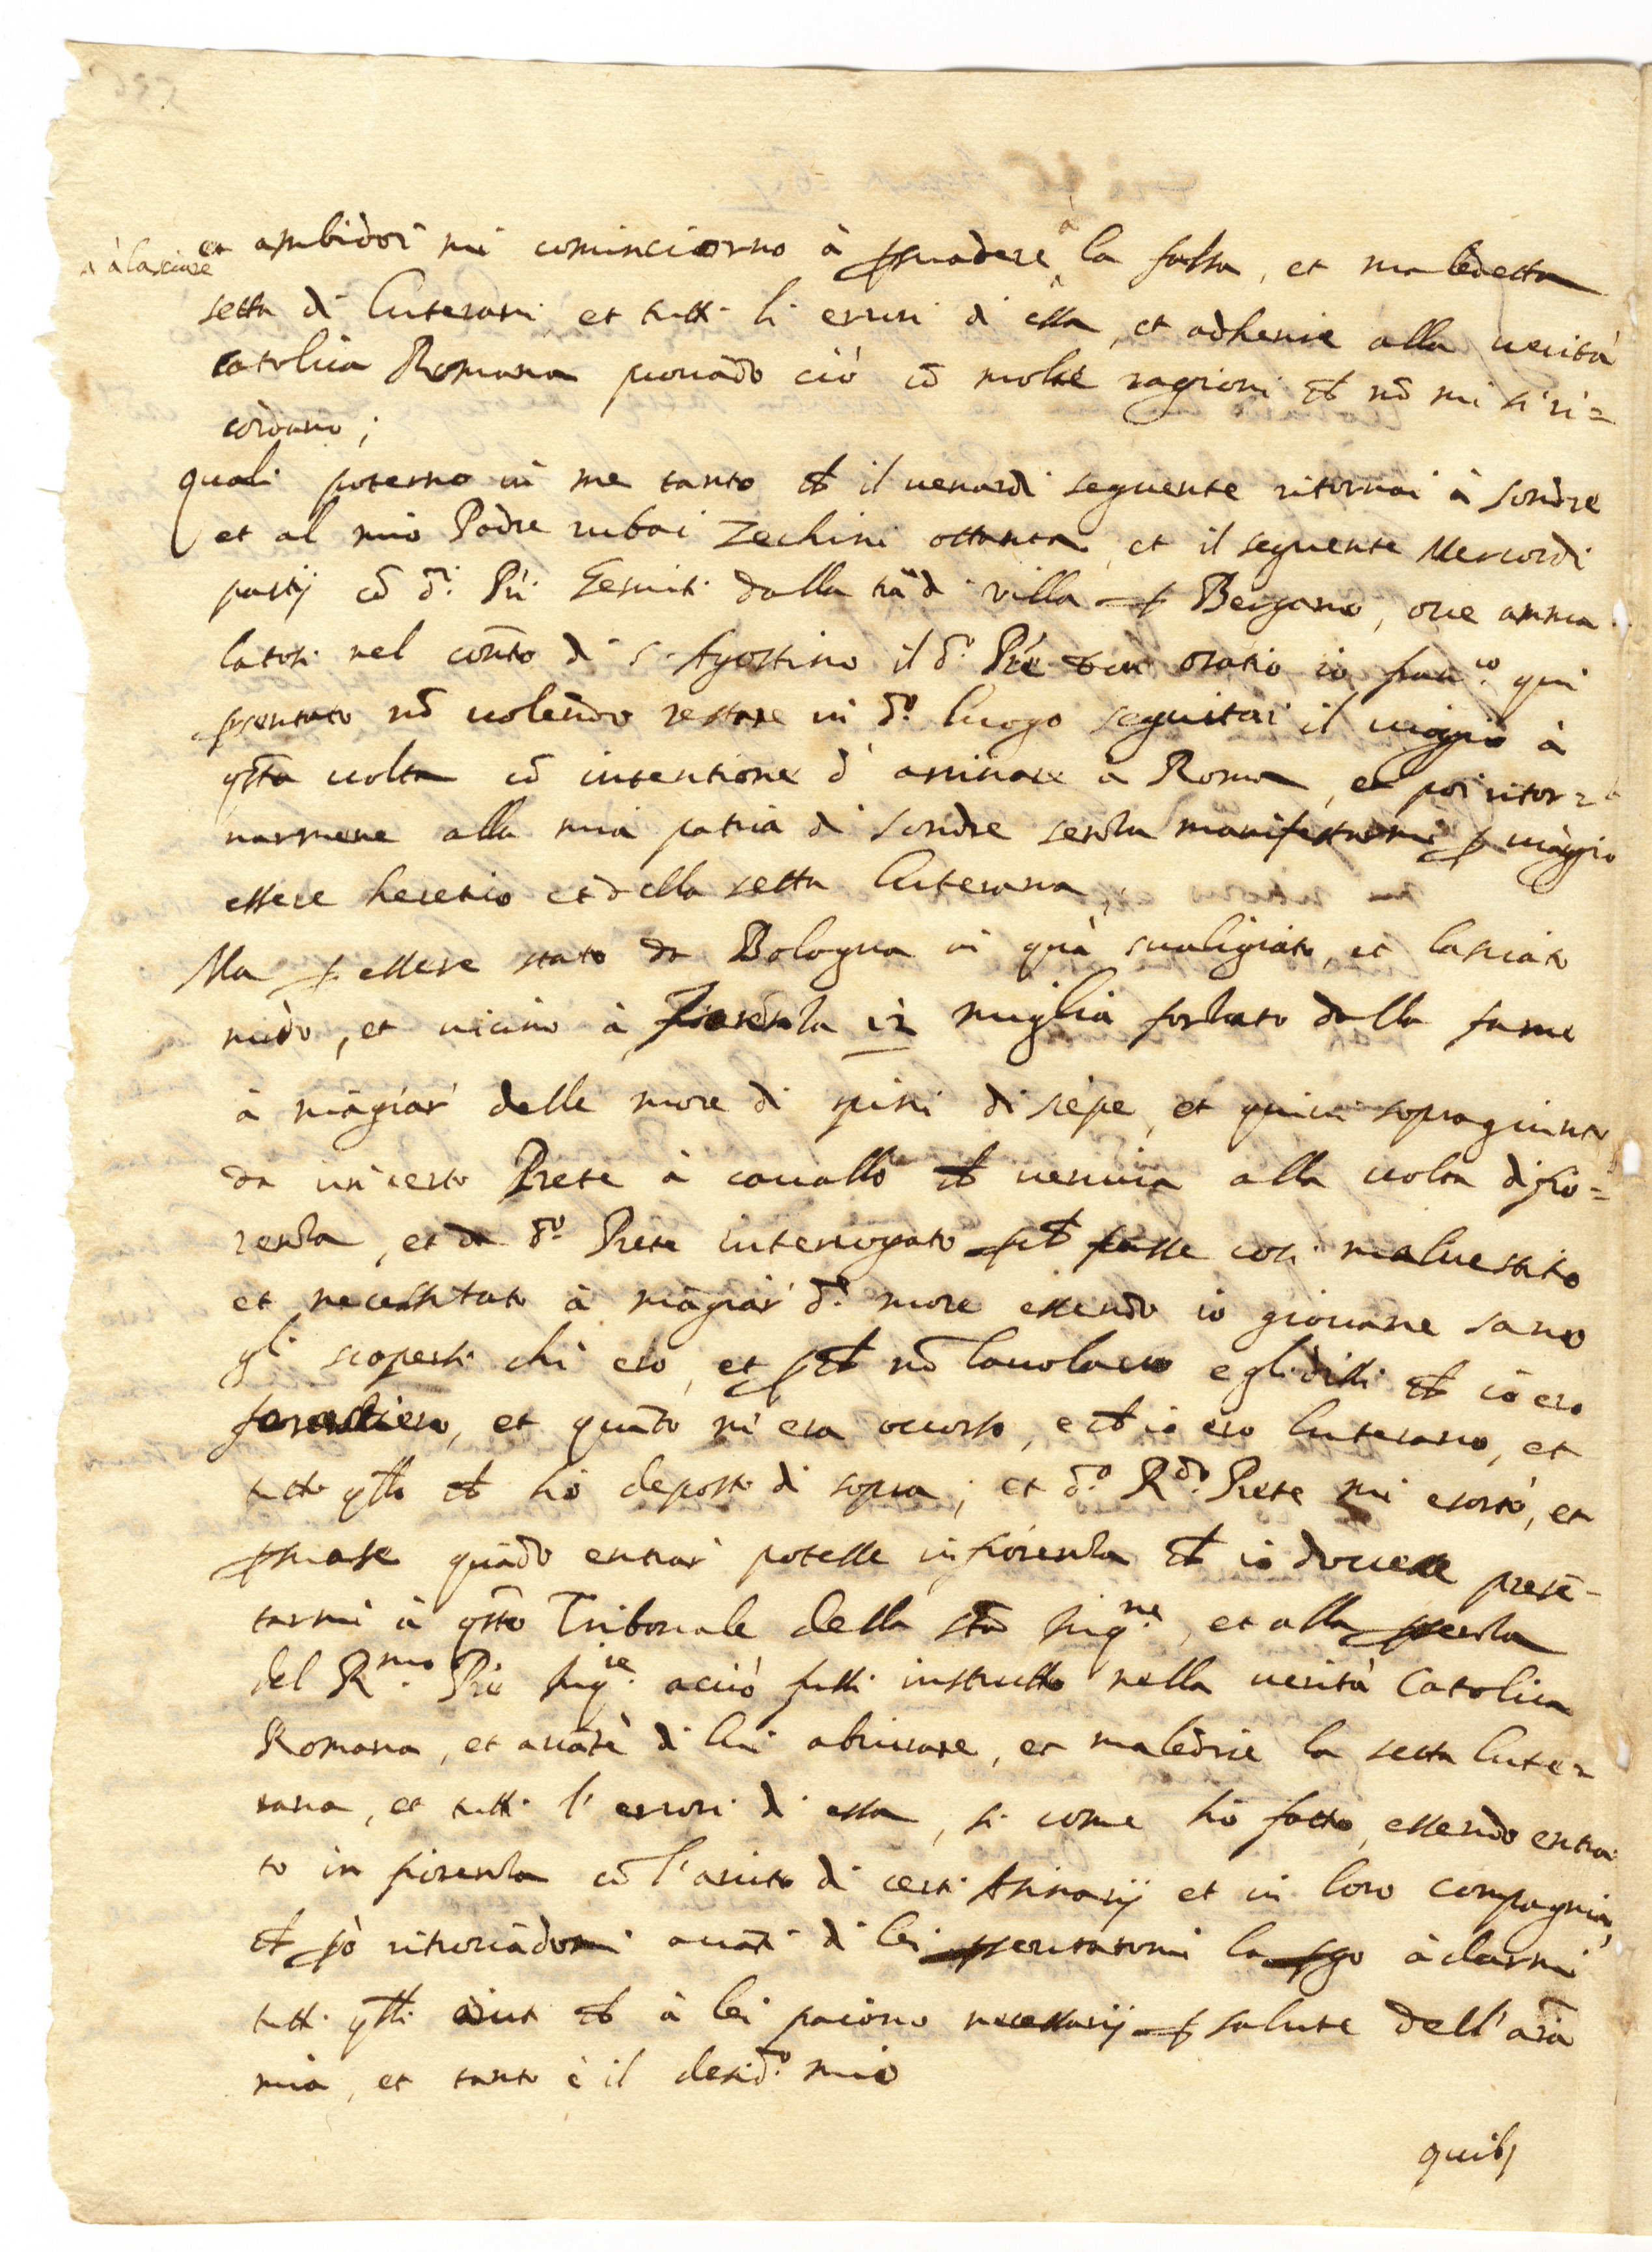 à lasciare
et ambidoi mi cominciorno à psuadere à la falsa, et maledetta
setta di luterani et tutti li errori di essa, et adherire alla verità
catolica Romana prouãdo ciò cõ molte ragioni ch nõ mi si ri=
cordano;
quali poterno in me tanto ch il uenardi seguente ritornai à sondre
et al mio Padre rubai Zechini ottanta, et il seguente Mercordi
partij cõ dⁱ Pri Gesuiti dalla trã di villa p Bergamo, oue amma
latosi nel conto di S. Agostino il d.º Pre oratio io franco. qui
psentato nõ uolendo restare in d.º luogo seguitai il uiaggio à
qsta uolta cõ intentione d'arriuare à Roma, et poi ritor=
narmene alla mia patria di sondre senza manifestarmi p uiaggio
essere heretico et della setta luterana,
Ma p essere stato da Bologna in quà sualigiato, et lasciato
nudo, et uicino à fiorenza 12 miglia forzato dalla fame
à mãgiar' delle more di spini di siepe, et quiui sopragiunto
da un certo Prete à cauallo ch ueniua alla uolta di fio=
renza, et da d.º Prete interrogato pch fusse cosi maluestito
et necessitato à mãgiar' d.e more essendo io giouane sano
gli scopersi chi ero, et pch nõ lauorauo egli dissi ch io ero
forestiero, et quãto m'era occorso, e ch io ero luterano, et
tutto qllo ch hò deposto di sopra; et d.º R.do Prete mi esortò, et
psuase quãdo entrar' potesse in fiorenza ch io douesse presẽ-
tarmi à qsto Tribonale della sta Inq.ne, et alla pseenza
del R.mo Pre Inq.re acciò fussi instrutto nella uerità Catolica
Romana, et auãte di lui abiurare, et maledire la setta lute=
rana, et tutti l'errori di essa, si come hò fatto, essendo entra
to in fiorenza cõ l'aiuto di certi et in loro compagnia,
ch pò ritrouãdomi auãti di lei psentatomi la pgo à darmi
tutti qlli aiuti ch à lei paiono necessarij p salute dell'aĩa
mia, et tanto è il desid.º mio
quibs